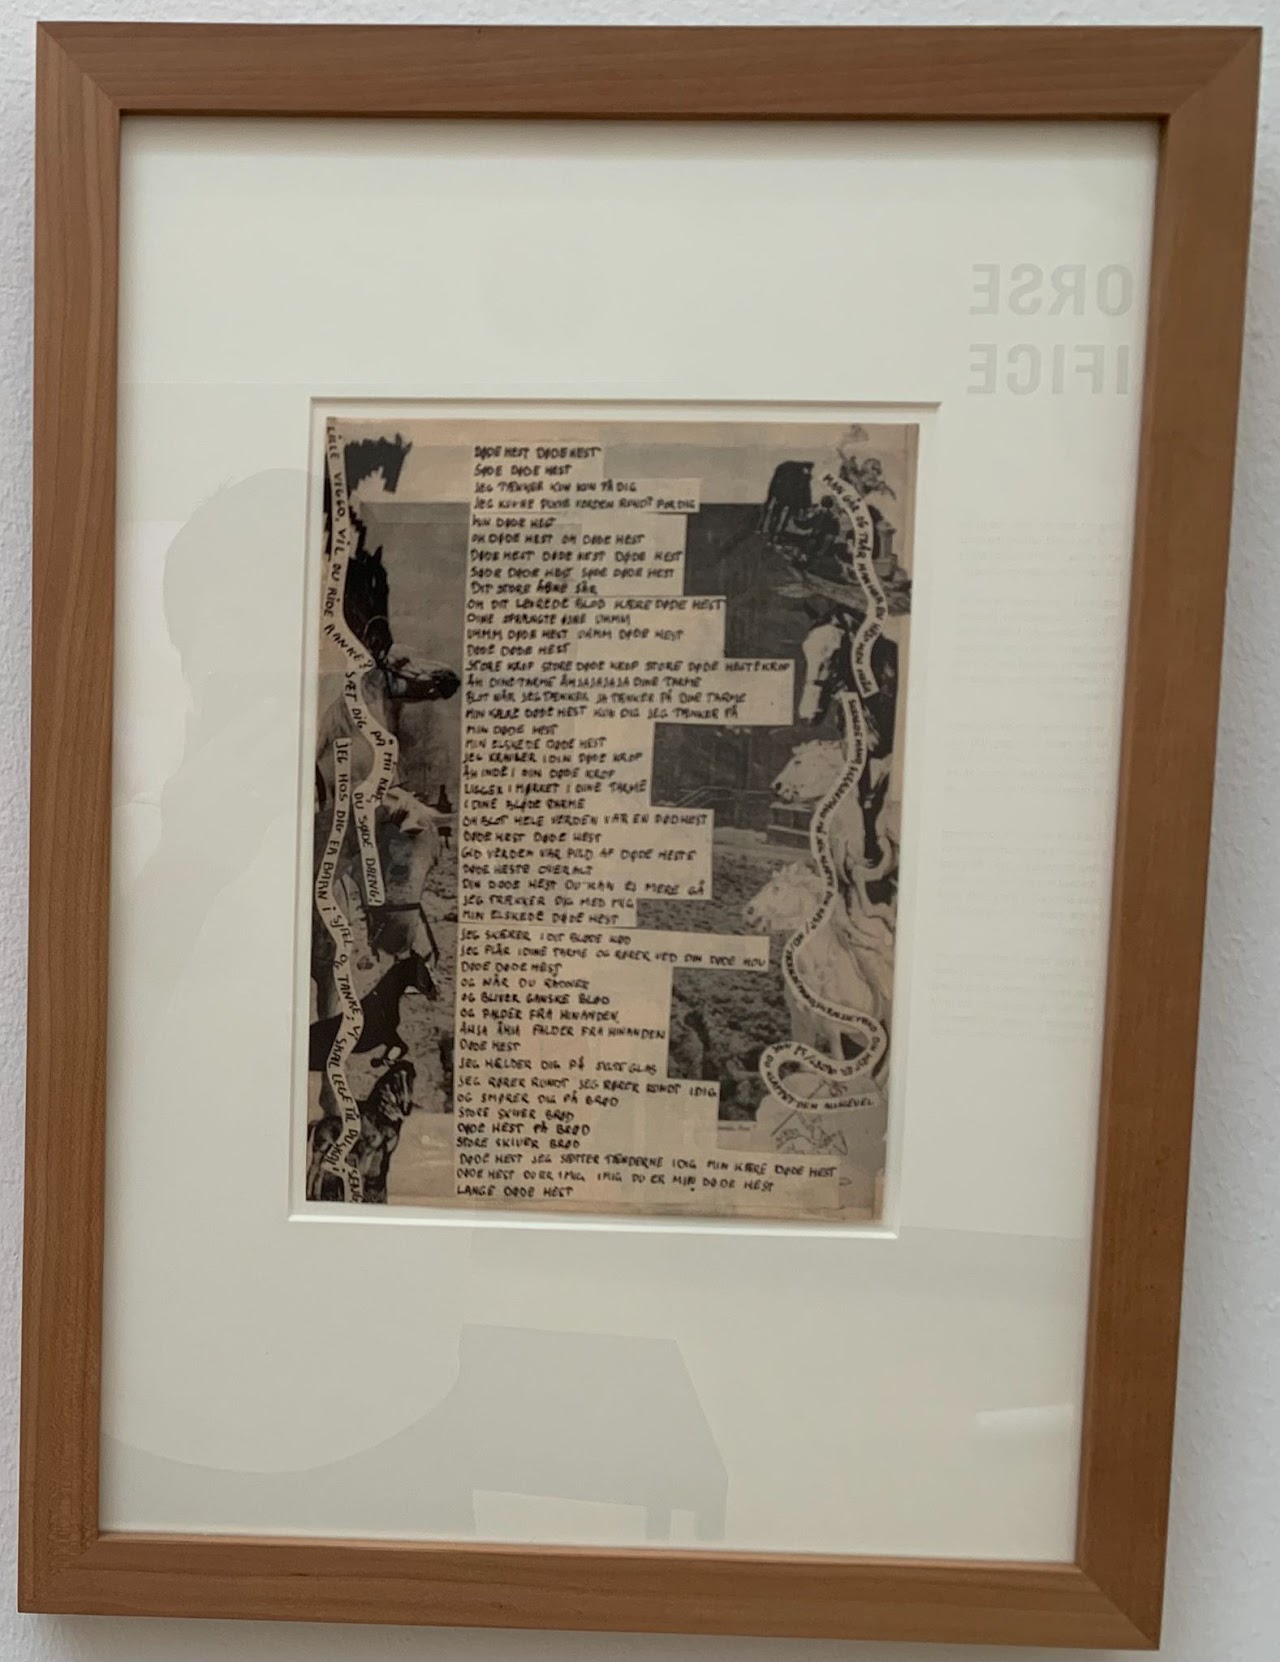 DØDE HEST DØDE HEST
SØDE DØDE HEST
JEG TÆNKER KUN KUN PÅ DIG
JEG KUNNE VERDEN RUNDT FOR DIG
MIN DØDE HEST
OH DØDE HEST OH DØDE HEST
DØDE HEST DØDE HEST DØDE HEST
SØDE DØDE HEST SØDE DØDE HEST
DIT STORE ÅBNE SÅR
OH DIT LEVREDE BLOD KÆRE DØDE HEST
DINE SPRÆNGTE ØJNE UMMM
UMMM DØDE HEST UMMM DØDE HEST
DØDE DØDE HEST
STORE KROP STORE DØDE KROP STORE DØDE HESTEKROP
ÅH DINE TARME DINE TARME
BLOT NÅR JEG TÆNKER JA TÆNKER PÅ DINE TARME
MIN KÆRE DØDE HEST KUN DIG JEG TÆNKER PÅ
MIN DØDE HEST
MIN ELSKEDE DØDE HEST
JEG KRAVLER I DIN DØDE KROP
ÅH INDE I DIN DØDE KROP
LIGGER I MØRKET I DINE TARME
I DINE BLØDE TARME
OH BLOT HELE VERDEN VAR EN DØD HEST
DØDE HEST DØDE HEST
GID VERDEN VAR FULD AF DØDE HESTE
DØDE HESTE OVERALT
DIN DØDE HEST DU KAN EJ MERE GÅ
JEG TRÆKKER DIG MED MIG
MIN ELSKEDE DØDE HEST
JEG SKÆRER I DIT BLØDE KØD
JEG FLÅR I DINE TARME OG RØRER VED DIN DØDE HOV
DØDE DØDE HEST
OG NÅR DU RÅDNER
OG BLIVER GANSKE BLØD
OG FALDER FRA HINANDEN
ÅHJA ÅHJA FALDER FRA HINANDEN
DØDE HEST
JEG HÆLDER DIG PÅ SYLTEGLAS
JEG RØRER RUNDT JEG RØRER RUNDT I DIG
OG SMØRER DIG PÅ BRØD
STORE SKIVER BRØD
DØDE HEST PÅ BRØD
STORE SKIVER BRØD
DØDE HEST JEG SÆTTER TÆNDERNE I DIG MIN KÆRE DØDE HEST
DØDE HEST DU ER I MIG I MIG DU ER MIN DØDE HEST
LANGE DØDE HEST
LILLE VIGGO, VIL DU RIDE RANKE? SÆT DIG PÅ MIT KNÆ, DU SØDE DRENG!
JEG HOS DIG ER BARN I SJÆL OG TANKE; VI SKAL LEGE TIL DU
MAN GÅR OG TROR MAN HAR EN VEN MEN
DIN HEST ER
DU KLAPPET DEN ALLIGEVEL
ORSE
IFICE